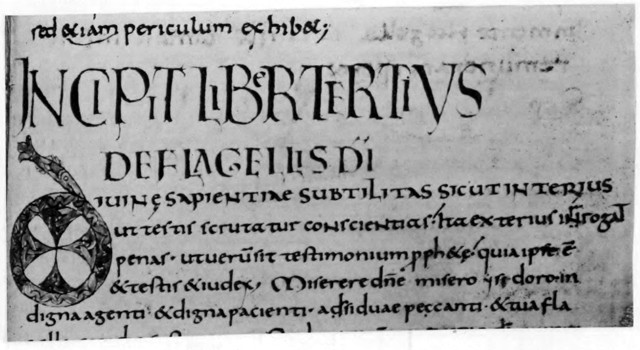 sed &iam periculum exhib&;
INCIPIT LIBER TERTIVS
DE FLAGELLIS DĪ
DIUINĘ SAPIENTIAE SUBTILITAS SICUT INTERIUS
ut testis scrutatur conscientias· Ita exterius inrogat
penas· ut uerū sit testimonium pph&ę· quia ipse ē
& testis & iudex· Miserere dn̄e misero isidoro in
digna agenti· & digna pacienti· adsiduae peccanti· & tua fla